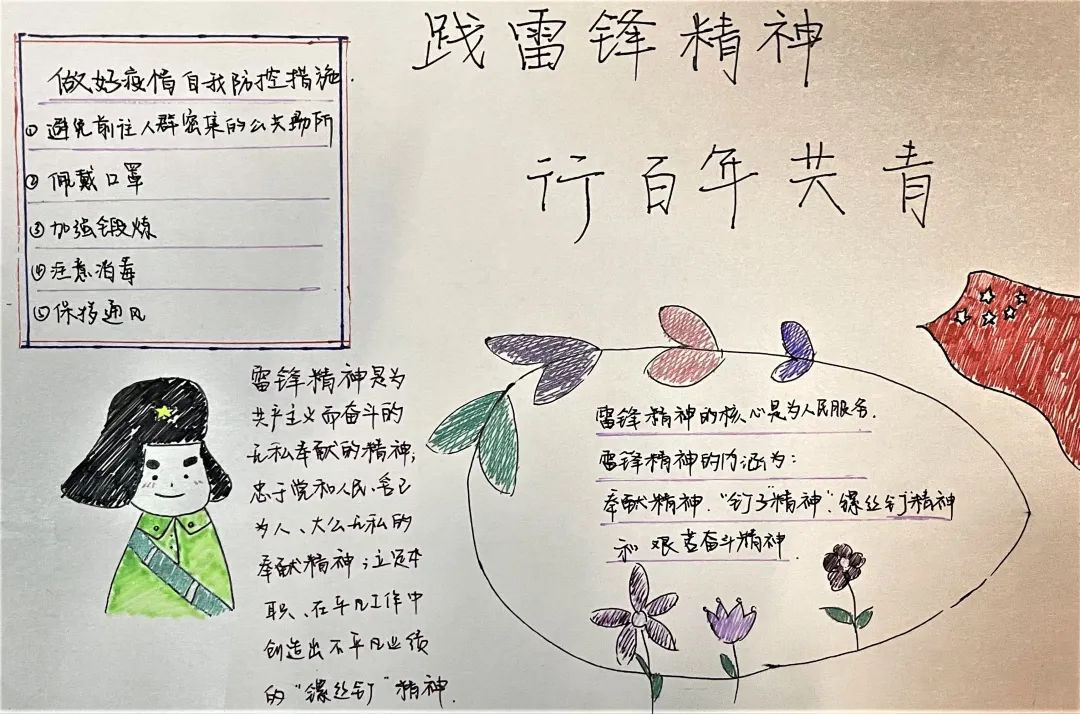 践雷锋精神
行百年共青
做好疫情自我防控措施.
①避免前往人群密集的公共场所
②佩戴口罩
③加强锻炼
④注意消毒
⑤保持通风
雷锋精神是为
共产主义而奋斗的
无私奉献的精神；
忠于党和人民、舍己
为人、大公无私的
奉献精神；立足本
职、在平凡工作中
创造出不平凡业绩
的“螺丝钉”精神.
雷锋精神的核心是为人民服务.
雷锋精神的内涵为：
奉献精神.“钉子”精神”.螺丝钉精神
和艰苦奋斗精神.